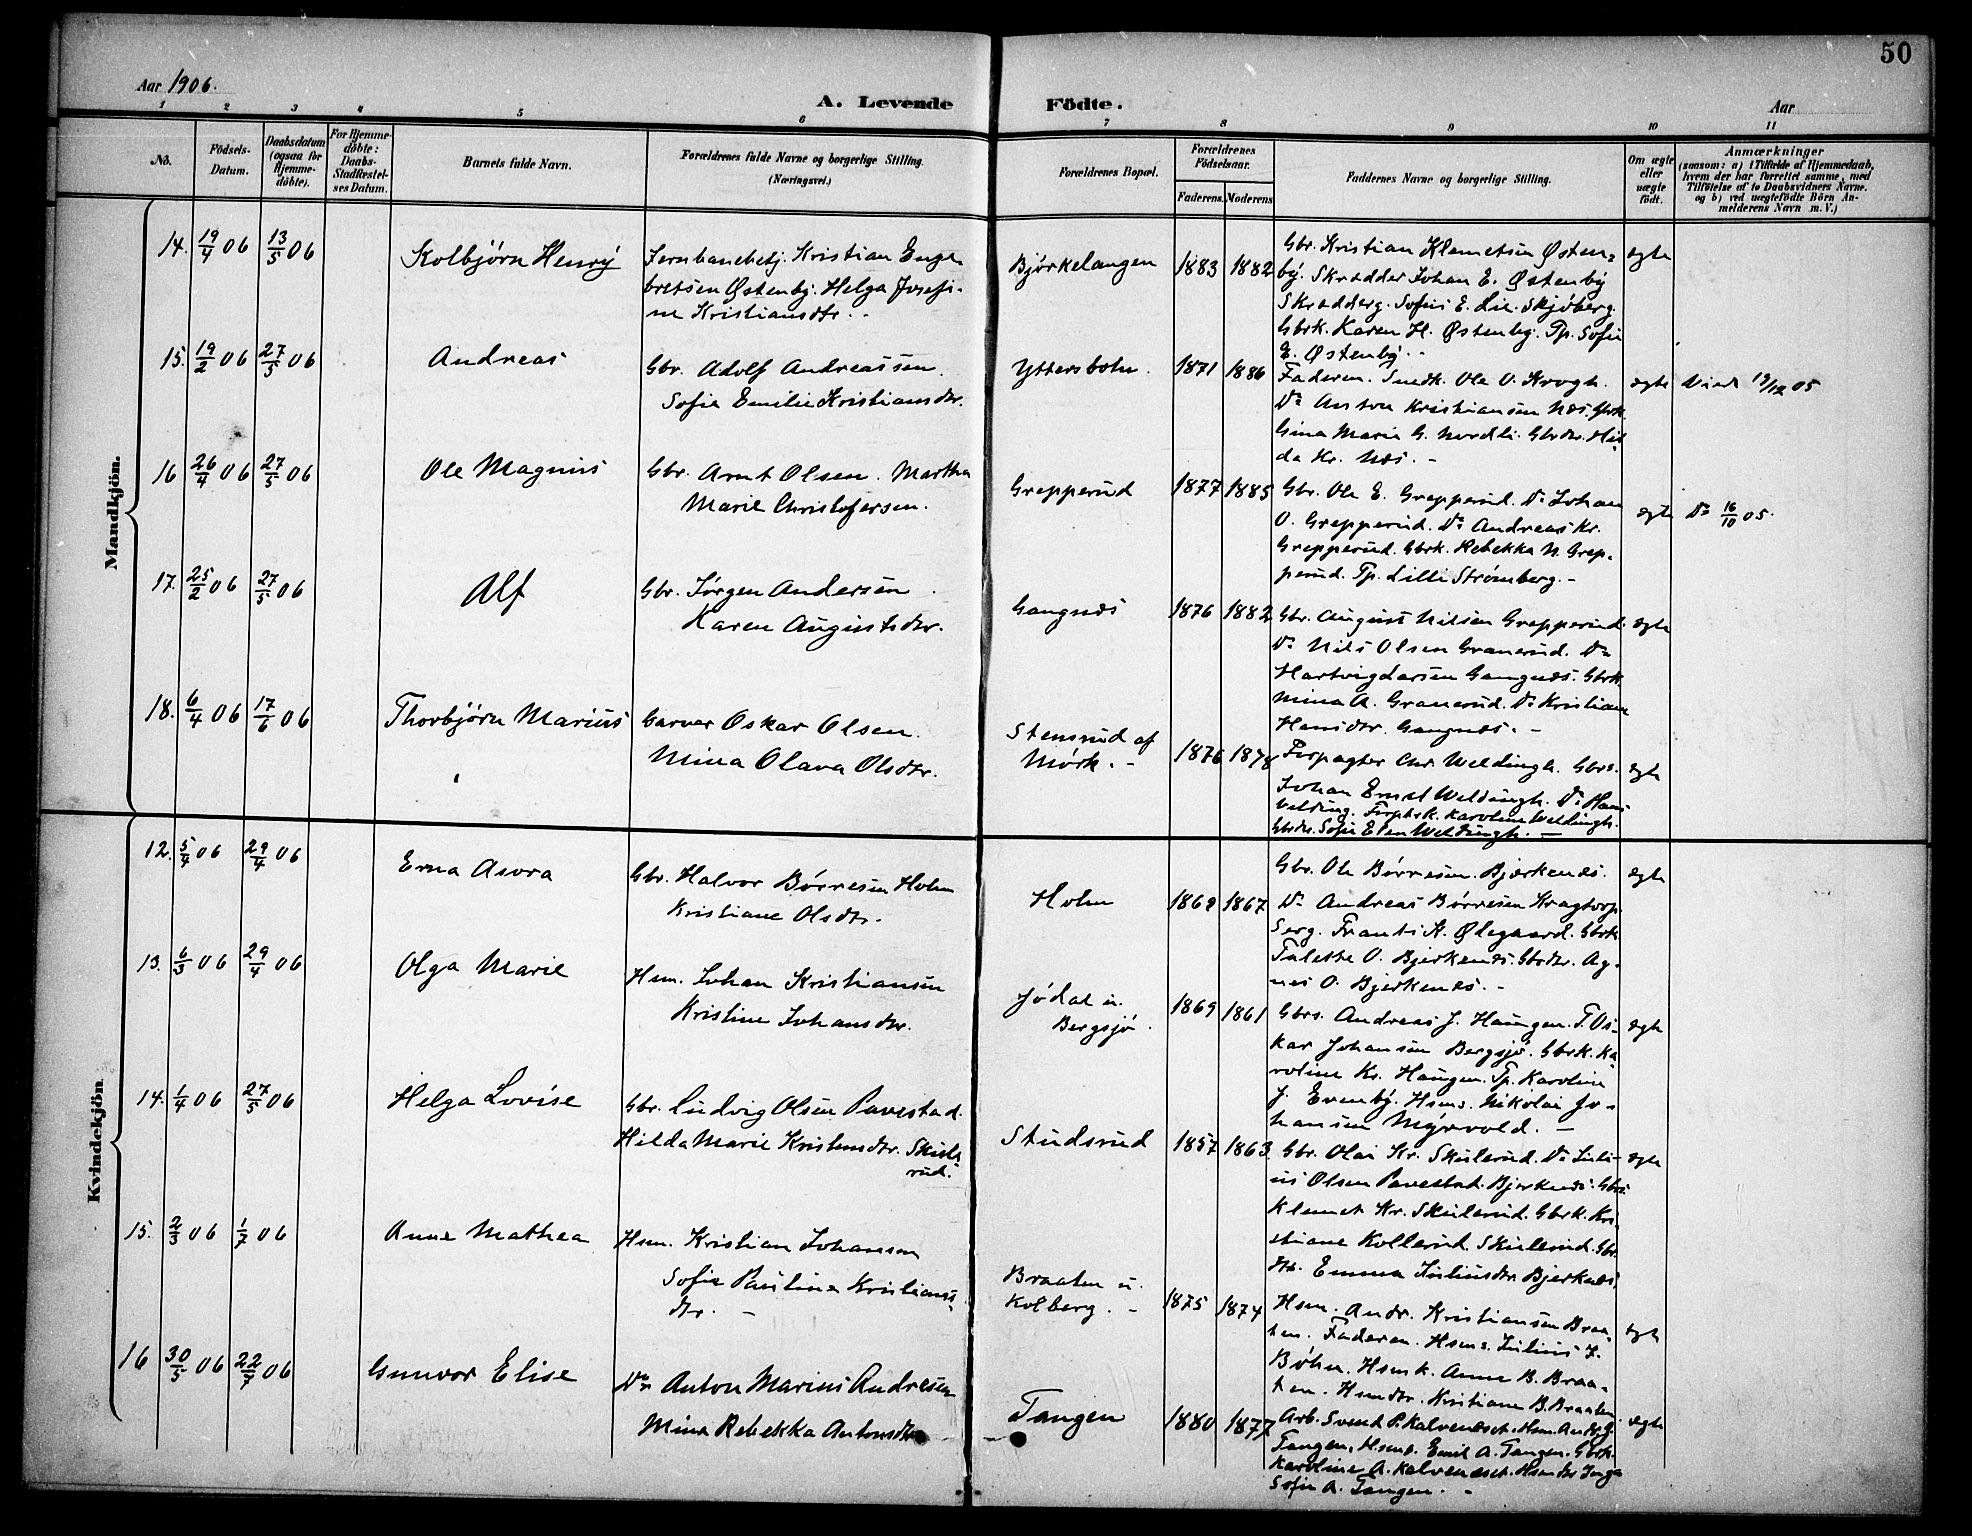 50
Aar 1906.
A. Levende Födte.
Aar
1 2 3 4 5 6 7 8 9 10 11
No.
Födsels-Datum.
Daabsdatum (ogsaa for Hjemme-döbte).
For Hjemme-döbte: Daabs-Stadfæstel-ses Datum.
Barnets fulde Navn.
Forældrenes fulde Navne og borgerlige Stilling.
(Næringsvei.)
Forældrenes Bopæl.
Forældrenes Födselsaar.
Faderens. Moderens
Faddernes Navne og borgerlige Stilling.
Om ægte eller uægte födt.
Anmærkninger
(saasom: a) i Tilfælde af Hjemmedaab,
hvem der har forrettet samme, med
Tilföielse af to Daabsvidners Navne.
og b) ved uægtefödte Börn An-
melderens Navn m. V.)
Mandkjön.
14. 19/4 06 13/5 06 Kolbjörn Henry
Jernbanebetj. Kristian Enge-
bretsen Østenby. Helga Josefi-
ne Kristiansdtr.
Bjørkelangen 1883 1882
Gbr. Kristian Klemetsen Østen-
by. Skrædder Johan E. Østenby
Skrædderg. Sofus E. Lie. Skjøberg.
Gbrk. Karen H. Østenby. Tp. Sofie
E. Østenby.
ægte
15. 19/2 06 27/5 06 Andreas
Gbr. Adolf Andreassen.
Sofie Emilie Kristiansdtr.
Yttersbøtn. 1871 1886
Faderen. Snedk. Ole O. Krogh.
Do Anton Kristiansen Næs. Gbrk.
Gina Marie G. Nordli. Gbrdtr. Hil-
da Kr. Næs.
ægte Viet 19/12 05
16 26/4 06 27/5 06 Ole Magnus
Gbr. Arnt Olsen. Martha
Marie Christofersen.
Grepperud 1877 1885
Gbr. Ole E. Grepperud. Do Johan
O. Grepperud. Do Andreas Kr.
Grepperud. Gbrk. Rebekka N. Grep-
perud. Tp. Lilli Strømberg.
ægte Do 16/10 05.
17. 25/2 06 27/5 06 Alf
Gbr. Jørgen Andersen
Karen Augustsdtr.
Gangnæs 1876 1882
Gbr. August Nilsen Grepperud.
Do Nils Olsen Granerud. Do
Hartvig Larsen Gangnæs. Gbrk.
Mina A. Granerud. Do Kristiane
Hansdtr. Gangnæs.
ægte
18. 6/4 06 17/6 06 Thorbjørn Marius
Garver Oskar Olsen.
Mina Olava Olsdtr.
Stensrud af
Mörk. 1876 1878
Forpagter Chr. Weldingh. Gbrs.
Johan Ernst Weldingh. Do Hans
Velding. Forptsk. Karoline Weldingh.
Gbrdtr. Sofie Elen Weldingh.
ægte
Kvindekjön.
12. 5/4 06 29/4 06 Erna Asora
Gbr. Halvor Børresen Holm
Kristiane Olsdtr.
Holm 1869 1867
Gbr. Ole Børresen. Bjerkenæs.
Do Andreas Børresen Kragtorp.
Serg. Frants A. Ødegaard. Gbrk.
Talette O. Bjerkenæs. Gbrdtr. Ag-
nes O. Bjerkenæs.
ægte
13. 6/3 06 29/4 06 Olga Marie
Hsm. Johan Kristiansen
Kristine Johansdtr.
Jødal u.
Bergsjø. 1869 1861
Gbrs. Andreas J. Haugen. T. Os-
kar Johansen Bergsjø. Gbrk. Ka-
roline Kr. Haugen. Tp. Karoline
J. Evenby. Hsms. Nikolai Jo-
hansen Myrvold.
ægte
14. 1/4 06 27/5 06 Helga Lovise
Gbr. Ludvig Olsen Pavestad.
Hilda Marie Kristensdtr. Skule-
rud.
Studsrud 1857 1863
Gbr. Olai Kr. Skulerud. Do Juli-
us Olsen Pavestad. Bjerkenæs. Gbrs.
Klemet Kr. Skulerud. Gbrk. Kri-
stiane Kollerud. Skulerud. Gbr.
dtr. Emma Juliusdtr Bjerknæs.
ægte
15. 2/3 06 1/7 06 Anne Mathea
Hsm. Kristian Johansen
Sofie Pauline Kristians-
dtr.
Braaten u.
Kolberg. 1875 1874
Hsm. Andr. Kristiansen Braa-
ten. Faderen. Hsms. Julius J.
Bøhn. Hsmk. Anne B. Braa-
ten. Hsmdtr. Kristiane B. Braaten.
ægte
16 30/5 06 22/7 06 Gunvor Elise
Do Anton Marius Andresen
Mina Rebekka Antonsdtr
Tangen 1880 1877
Arb. Svend P. Kalvenæset. Hsm. Andr. G.
Tangen. Hsms. Emil A. Tangen. Gbrk.
Karoline A. Kalvenæset. Hsmdtr Inga
Sofie A. Tangen.
ægte